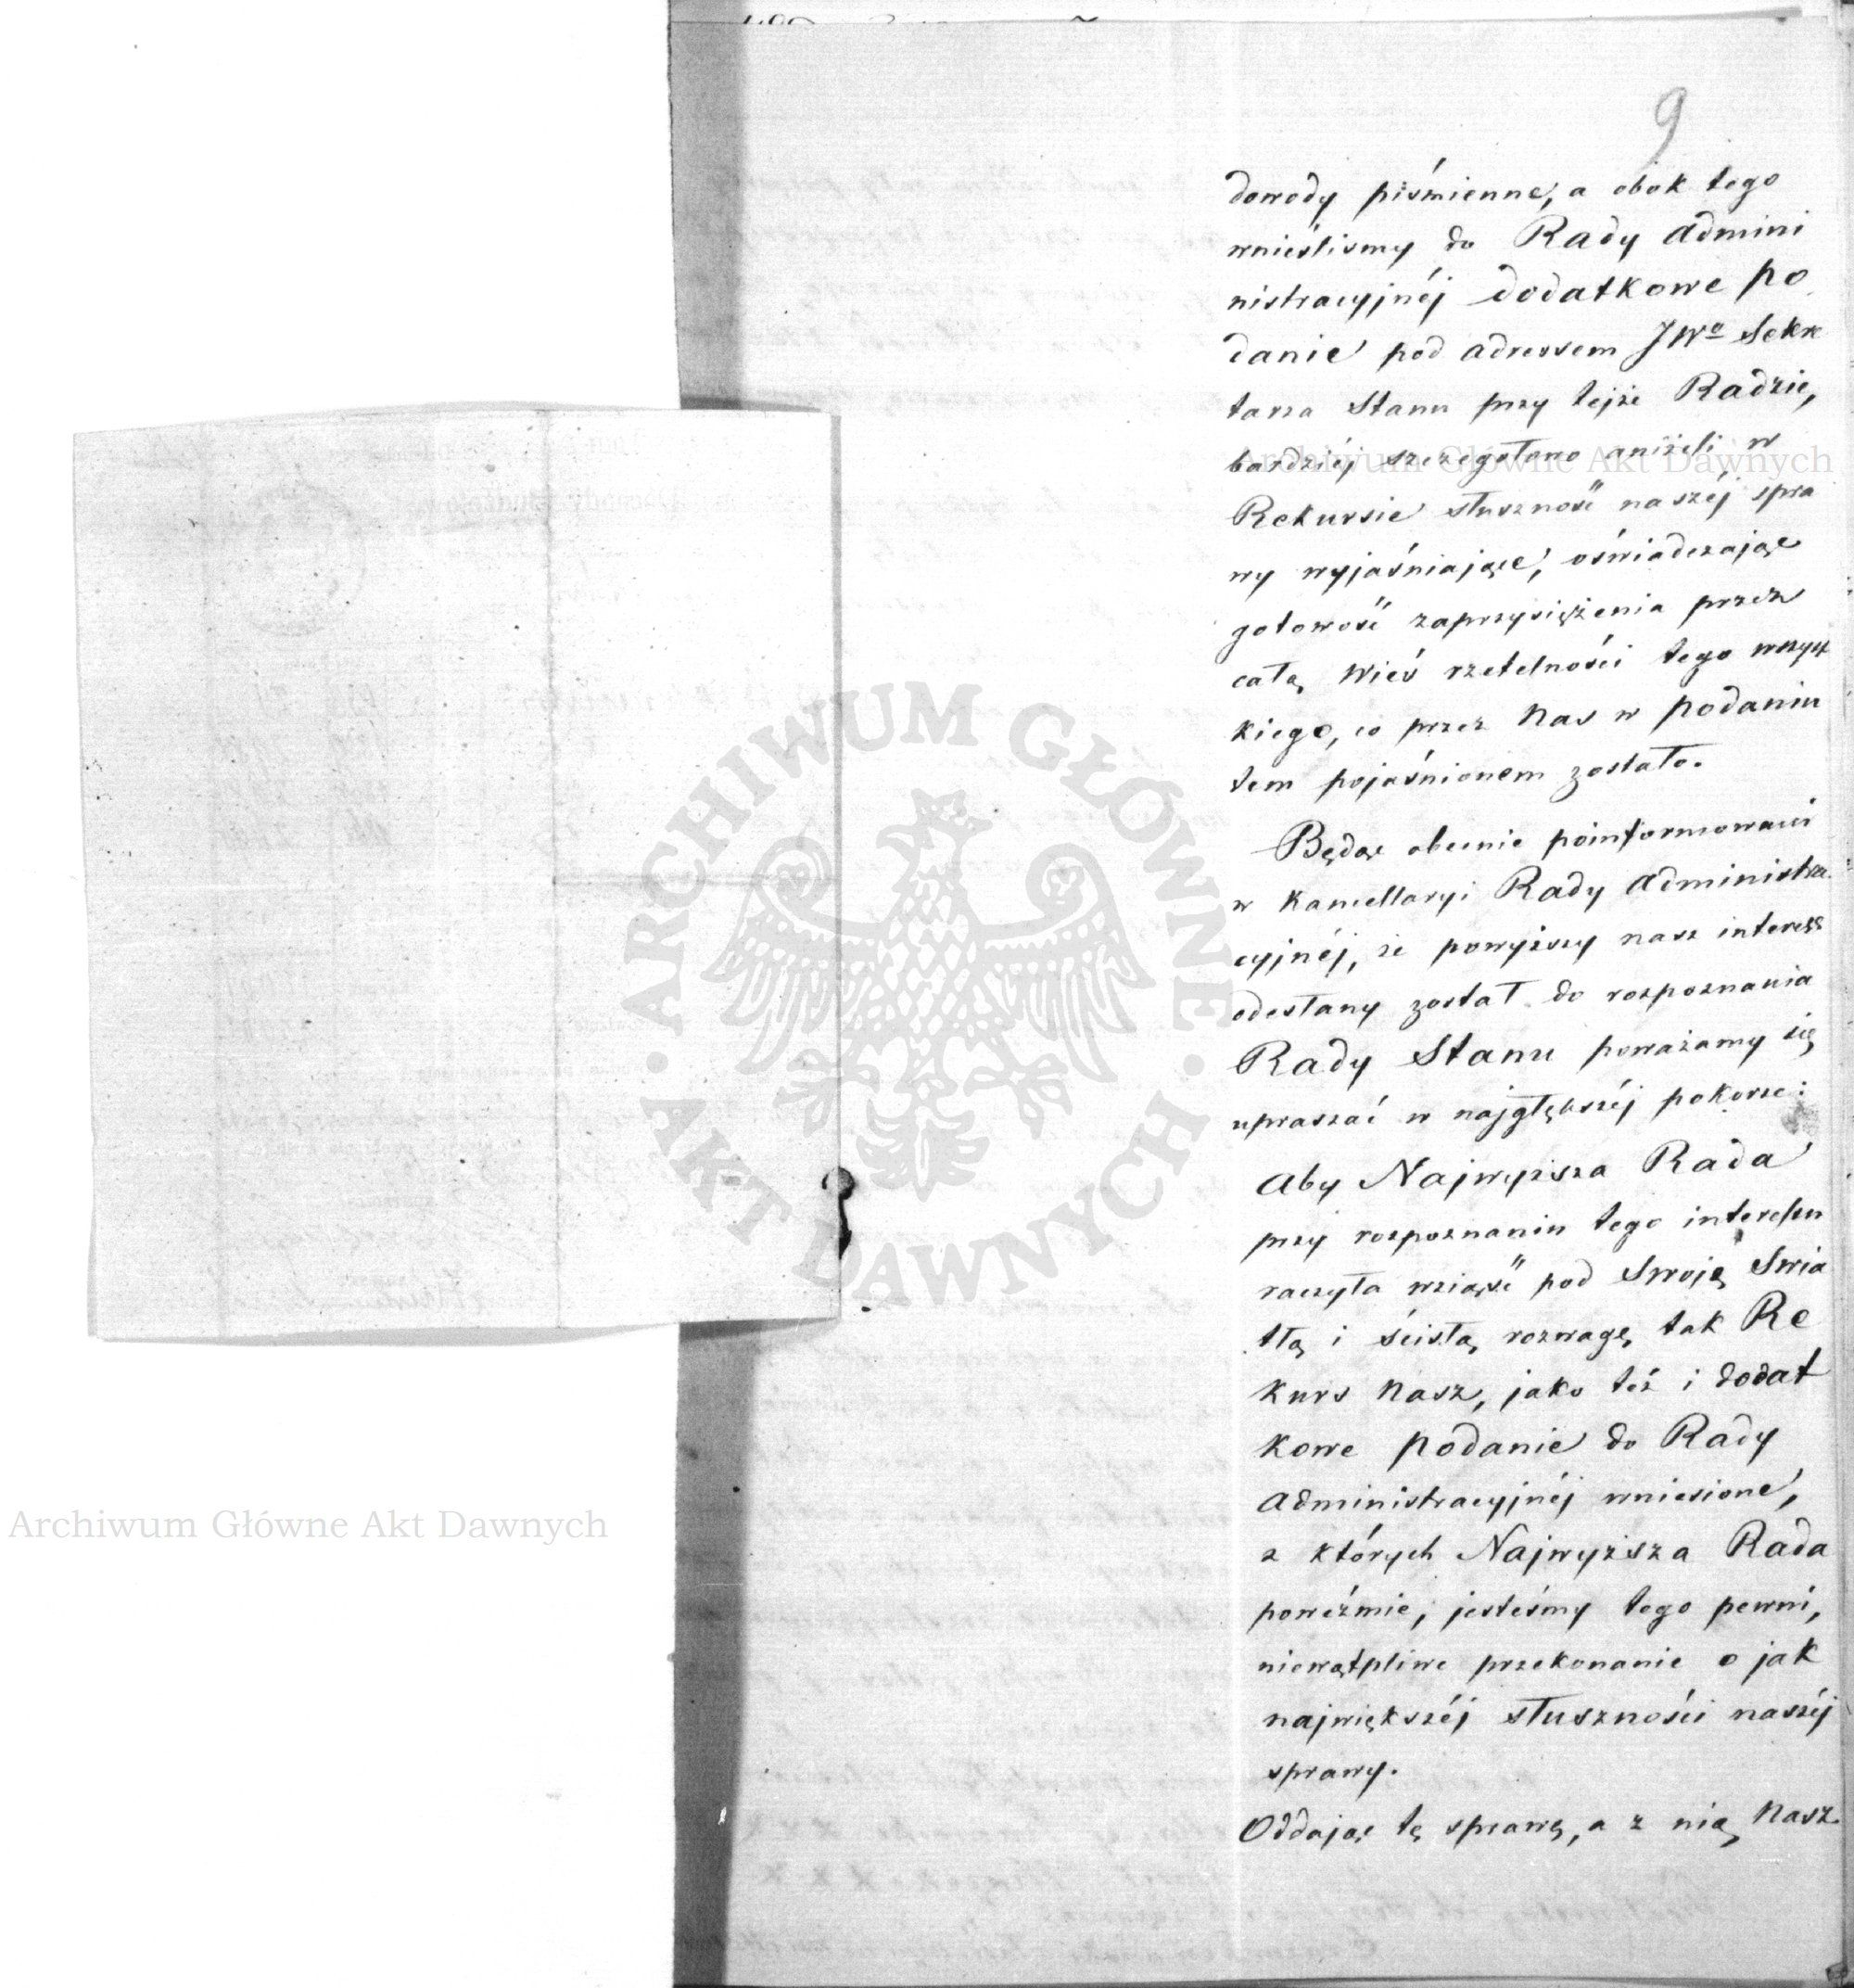 9
dowody piśmienne, a obok tego
wnieślismy do Rady Admini
nistracyjnéj dodatkowe po
danie pod adressem JWo Sekre
tarza Stanu przy tejże Radzie,
bardziéj szczegółowo aniżeli w
Rekursie słuszność naszéj spra
wy wyjaśniające, oświadczając
gotowość zaprzysiężenia przez
całą wieś rzetelności tego wszyst
kiego, co przez Nas w podaniu
tem pojaśnionem zostało.
Będąc obecnie poinformowani
w Kancellaryi Rady Administra
cyjnéj, że powyższy nasz interess
odesłany został do rozpoznania
Rady Stanu poważamy się
upraszać w najgłębszéj pokorze:
Aby Najwyższa Rada
przy rozpoznaniu tego interessu
raczyła wziąść pod Swoję Swia
tłą i ścisłą rozwagę tak Re
kurs Nasz, jako też i dodat
kowe podanie do Rady
Administracyjnéj wniesione,
z których Najwyższa Rada
poweźmie, jesteśmy tego pewni,
niewątpliwe przekonanie o jak
największéj słuszności naszéj
sprawy.
Oddając tę sprawę, a z nią Nasz
ARCHIWUM GŁÓWNE AKT DAWNYCH
Archiwum Główne Akt Dawnych
Archiwum Główne Akt Dawnych